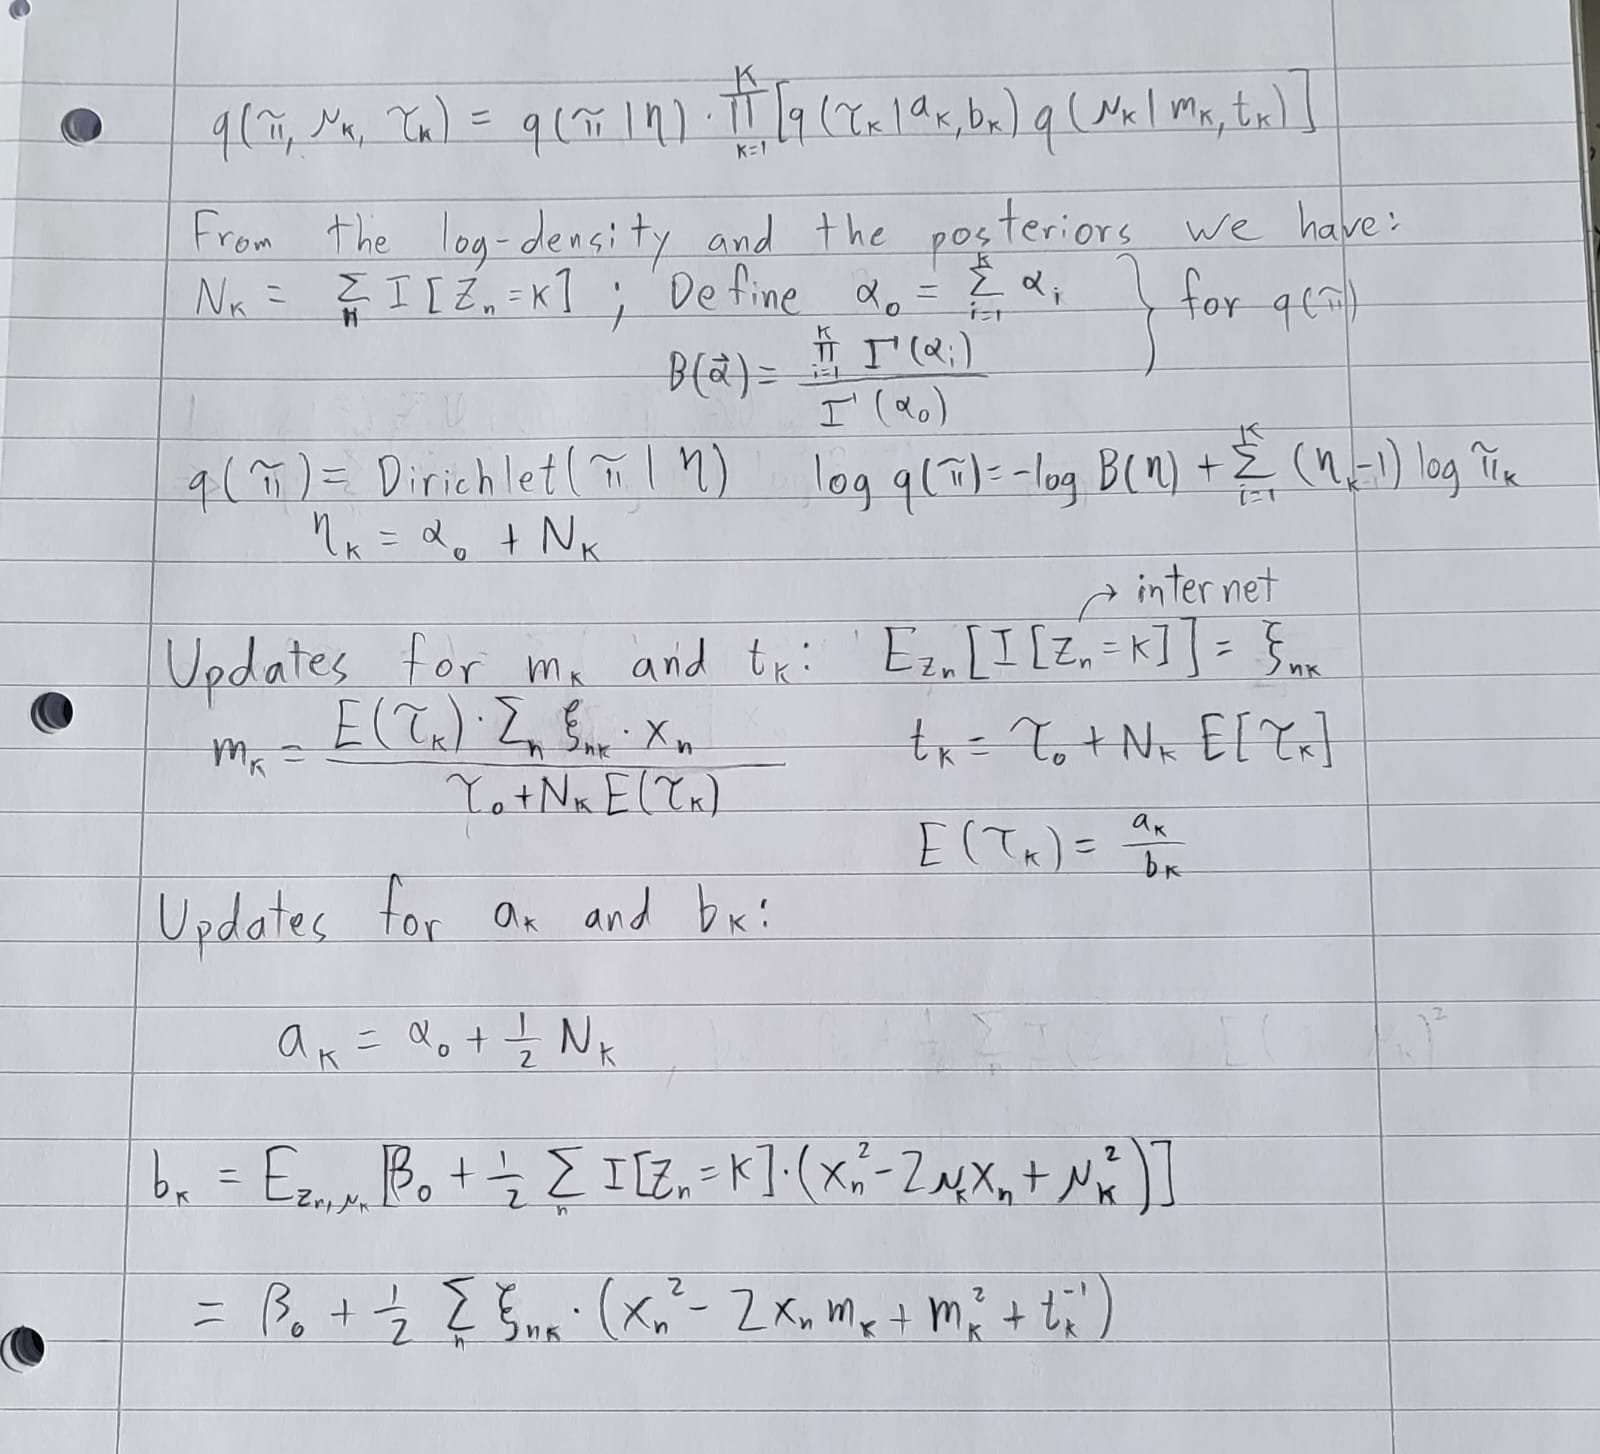 q(π, μ_k, τ_k) = q(π | η) · ∏_{k=1}^{K} [q(τ_k | a_k, b_k) q(μ_k | m_k, t_k)]
From the log-density and the posteriors we have:
N_k = Σ_n I[Z_n = k] ; Define α_0 = Σ_{i=1}^{k} α_i } for q(π)
B(α⃗) = ∏_{i=1}^{K} Γ(α_i) / Γ(α_0)
q(π) = Dirichlet(π | η) log q(π) = -log B(η) + Σ_{i=1}^{K} (η_k - 1) log π_k
η_k = α_0 + N_k
→ internet
Updates for m_k and t_k: E_{z_n}[I[Z_n = k]] = ξ_{nk}
m_k = E(τ_k) · Σ_n ξ_{nk} · x_n / τ_0 + N_k E(τ_k) t_k = τ_0 + N_k E[τ_k]
E(τ_k) = a_k / b_k
Updates for a_k and b_k:
a_k = α_0 + 1/2 N_k
b_k = E_{z_n, μ_k} [β_0 + 1/2 Σ_n I[Z_n = k] · (x_n^2 - 2μ_k x_n + μ_k^2)]
= β_0 + 1/2 Σ_n ξ_{nk} · (x_n^2 - 2 x_n m_k + m_k^2 + t_k^{-1})